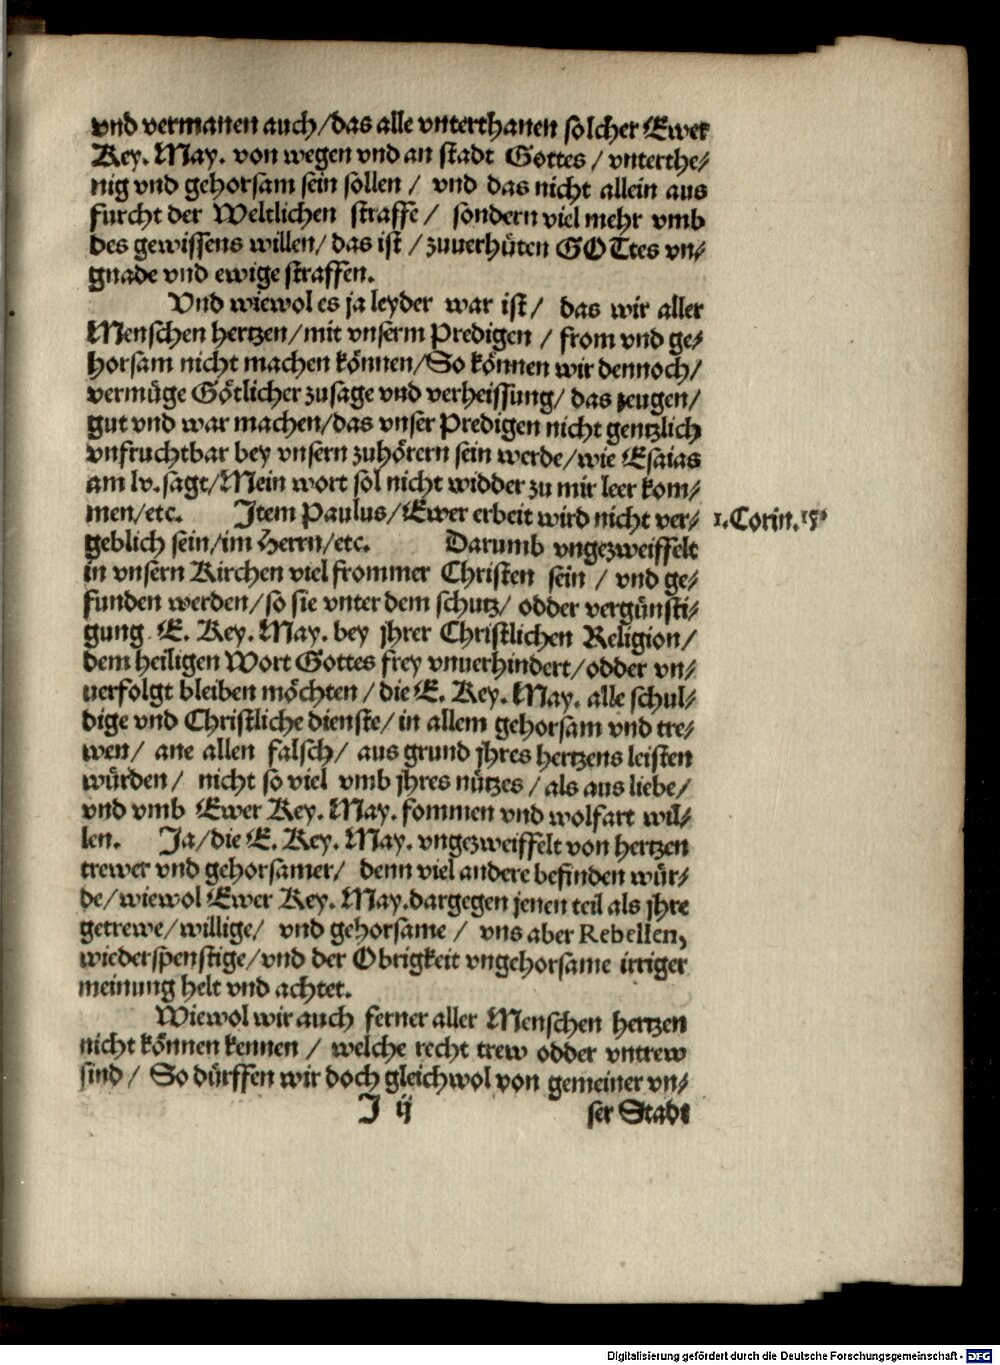 vnd vermanen auch/das alle vnterthanen solcher Ewer
Key. May. von wegen vnd an stadt Gottes / vnterthe⸗
nig vnd gehorsam sein sollen / vnd das nicht allein aus
furcht der Weltlichen straffe / sondern viel mehr vmb
des gewissens willen/das ist / zuuerhüten GOTtes vn⸗
gnade vnd ewige straffen.
Vnd wiewol es ja leyder war ist / das wir aller
Menschen hertzen/mit vnserm Predigen / from vnd ge⸗
horsam nicht machen können/So können wir dennoch/
vermüge Götlicher zusage vnd verheissung/ das zeugen/
gut vnd war machen/das vnser Predigen nicht gentzlich
vnfruchtbar bey vnsern zuhörern sein werde/wie Esaias
am lv. sagt/Mein wort sol nicht widder zu mir leer kom⸗
men/etc. Item Paulus/Ewer erbeit wird nicht ver⸗ 1.Corin.15.
geblich sein/im Herrn/etc. Darumb vngezweiffelt
in vnsern Kirchen viel frommer Christen sein / vnd ge⸗
funden werden/so sie vnter dem schutz/ odder vergünsti⸗
gung E. Key. May. bey jhrer Christlichen Religion/
dem heiligen Wort Gottes frey vnuerhindert/odder vn⸗
uerfolgt bleiben möchten / die E. Key. May. alle schul⸗
dige vnd Christliche dienste/in allem gehorsam vnd tre⸗
wen/ ane allen falsch/ aus grund jhres hertzens leisten
würden / nicht so viel vmb jhres nützes / als aus liebe/
vnd vmb Ewer Key. May. fommen vnd wolfart wil⸗
len. Ja/die E. Key. May. vngezweiffelt von hertzen
trewer vnd gehorsamer/ denn viel andere befinden wür⸗
de/wiewol Ewer Key. May.dargegen jenen teil als jhre
getrewe/willige/ vnd gehorsame / vns aber Rebellen,
wiederspenstige/vnd der Obrigkeit vngehorsame irriger
meinung helt vnd achtet.
Wiewol wir auch ferner aller Menschen hertzen
nicht können kennen / welche recht trew odder vntrew
sind / So dürffen wir doch gleichwol von gemeiner vn⸗
J ij ser Stadt
Digitalisierung gefördert durch die Deutsche Forschungsgemeinschaft - DFG